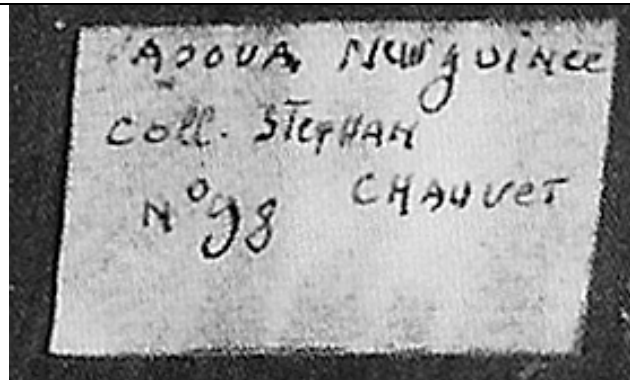 PAPOUA, New guinee
Coll. STEPHAN
N° 98 CHAUVET